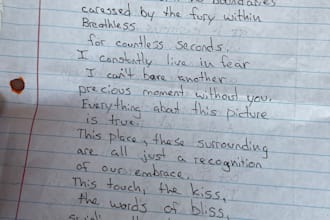 boundaries
caressed by the fury within
Breathless
for countless seconds.
I constantly live in fear
I can't bare another
precious moment without you.
Everything abot this picture
is true.
This place, these surrounding
are all just a recognition
of our embrace.
This touch, the kiss,
the words of bliss,